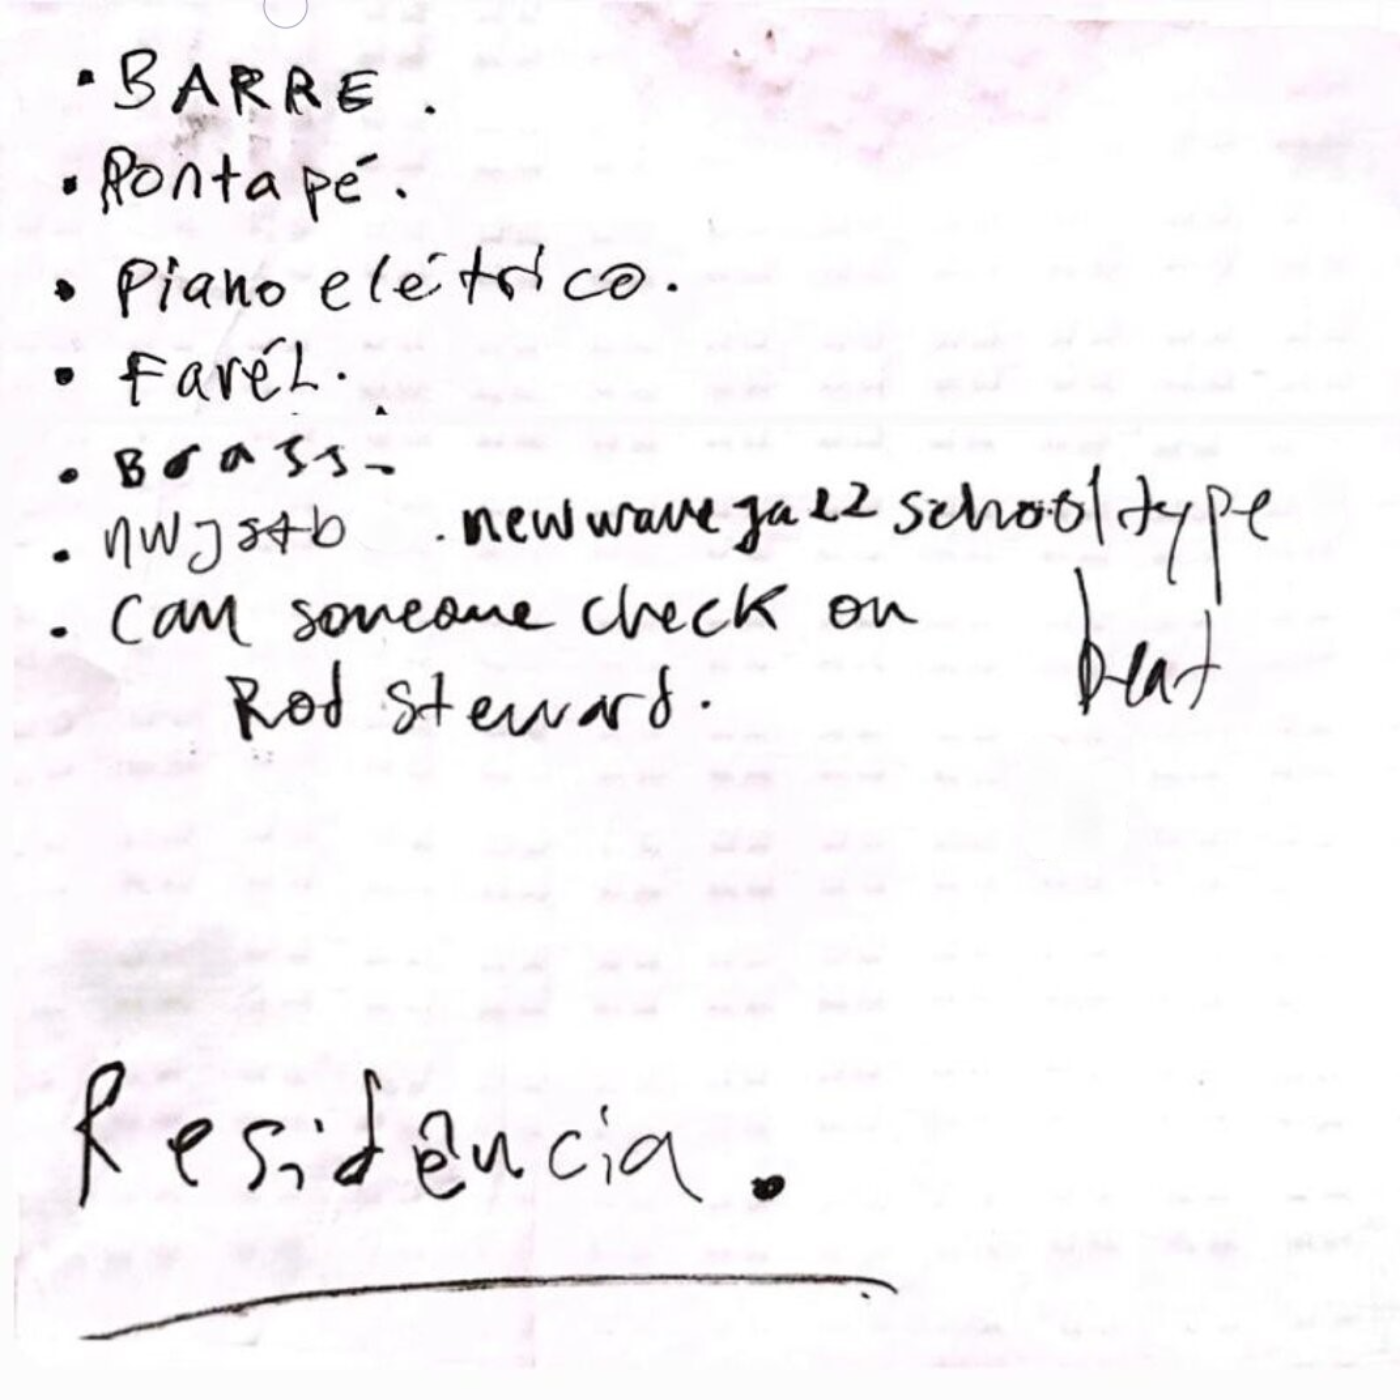 • BARRE.
• Pontapé.
• Piano elétrico.
• FaréL.
• Brass-
• nwjstb . new wave jazz school type
beat
• Can someone check on
Rod Steward.
Residência.